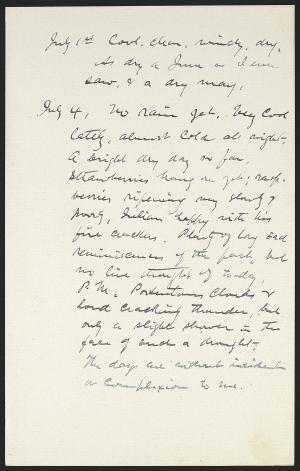 July 1st Cool, clear, windy, dry.
As dry a June as I ever
saw, & a dry May.
July 4, No rain yet. Very cool
lately, almost cold at night.
A bright dry day so far.
Strawberries hang on yet; rasp-
berries ripening very slowly &
poorly, Julian happy with his
fire crackers. Plenty of long sad
reminiscences of the past, but
no live thoughts of today.
P.M. Portentous clouds &
loud cracking thunder, but
only a slight shower in the
face of such a drought.
The days are without incident
or complexion to me.